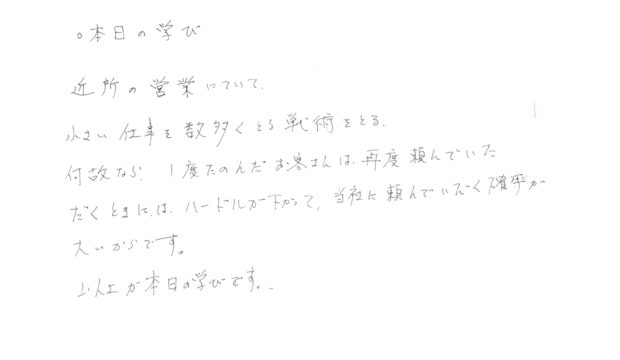 ○本日の学び
近所の営業について、
小さい仕事を数多くとる戦術をとる。
何故なら、1度たのんだお客さんは、再度頼んでいた
だくときには、ハードルが下がって、当社に頼んでいただく確率が
大いからです。
以上が本日の学びです。